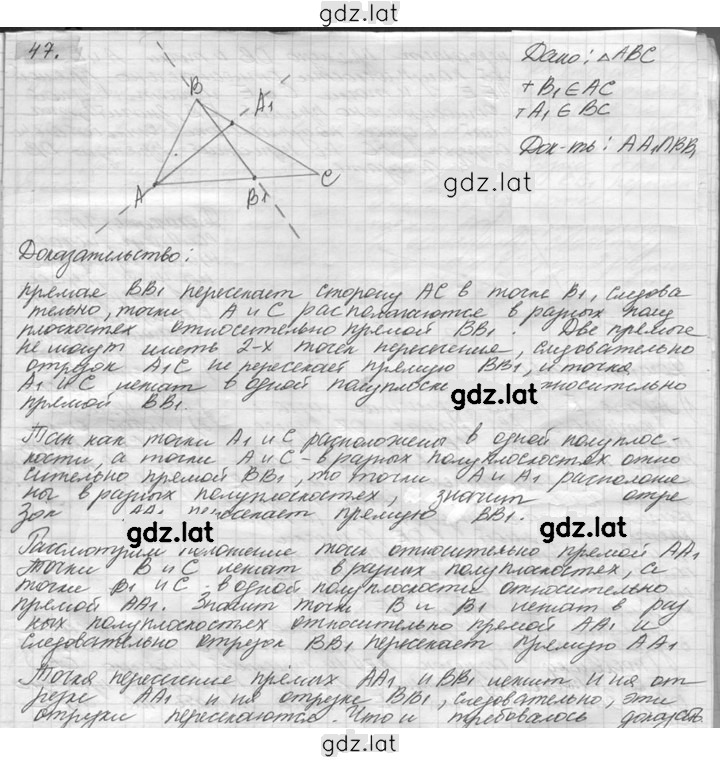 gdz.lat
47.
B
A1
A
B1
C
Дано: △ABC
т B1 ∈ AC
т A1 ∈ BC
Док-ть: AA1∩BB1
gdz.lat
Доказательство:
прямая BB1 пересекает сторону AC в точке B1, следова
тельно, точки A и C располагаются в разных полу
плоскостях относительно прямой BB1. Две прямые
не могут иметь 2-х точек пересечения, следовательно
отрезок A1C не пересекает прямую BB1, и точка
A1 и C лежат в одной полуплоско gdz.lat тносительно
прямой BB1.
Так как точки A1 и C расположены в одной полуплос-
кости, а точки A и C - в разных полуплоскостях отно
сительно прямой BB1, то точки A и A1 расположе
ны в разных полуплоскостях, значит отре
зок AA1 пересекает прямую BB1.
gdz.lat
gdz.lat
Рассмотрим положение точек относительно прямой AA1
Точки B и C лежат в разных полуплоскостях, а
точки B1 и C - в одной полуплоскости относительно
прямой AA1. Значит точки B и B1 лежат в раз
ных полуплоскостях относительно прямой AA1 и
следовательно отрезок BB1 пересекает прямую AA1
Точка пересечения прямых AA1 и BB1 лежит и на от
резке AA1 и на отрезке BB1, следовательно, эти
отрезки пересекаются. Что и требовалось доказать.
gdz.lat